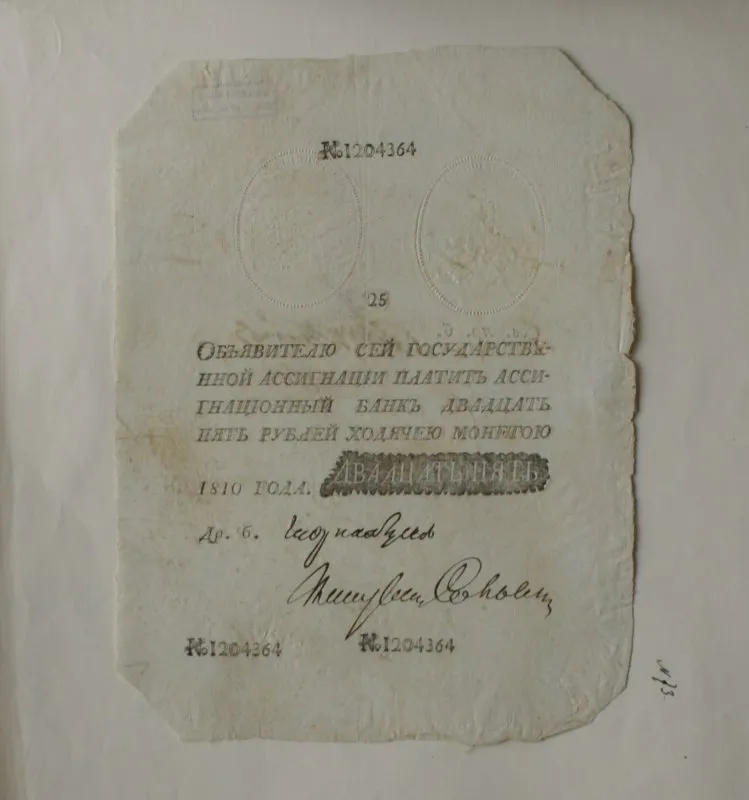 №1204364
25
ОБЪЯВИТЕЛЮ СЕЙ ГОСУДАРСТВЕ-
ННОЙ АССИГНАЦІИ ПЛАТИТЪ АССИ-
ГНАЦІОННЫЙ БАНКЪ ДВАДЦАТЬ
ПЯТЬ РУБЛЕЙ ХОДЯЧЕЮ МОНЕТОЮ
1810 ГОДА. ДВАДЦАТЬ ПЯТЬ
Др. б.
№1204364 №1204364